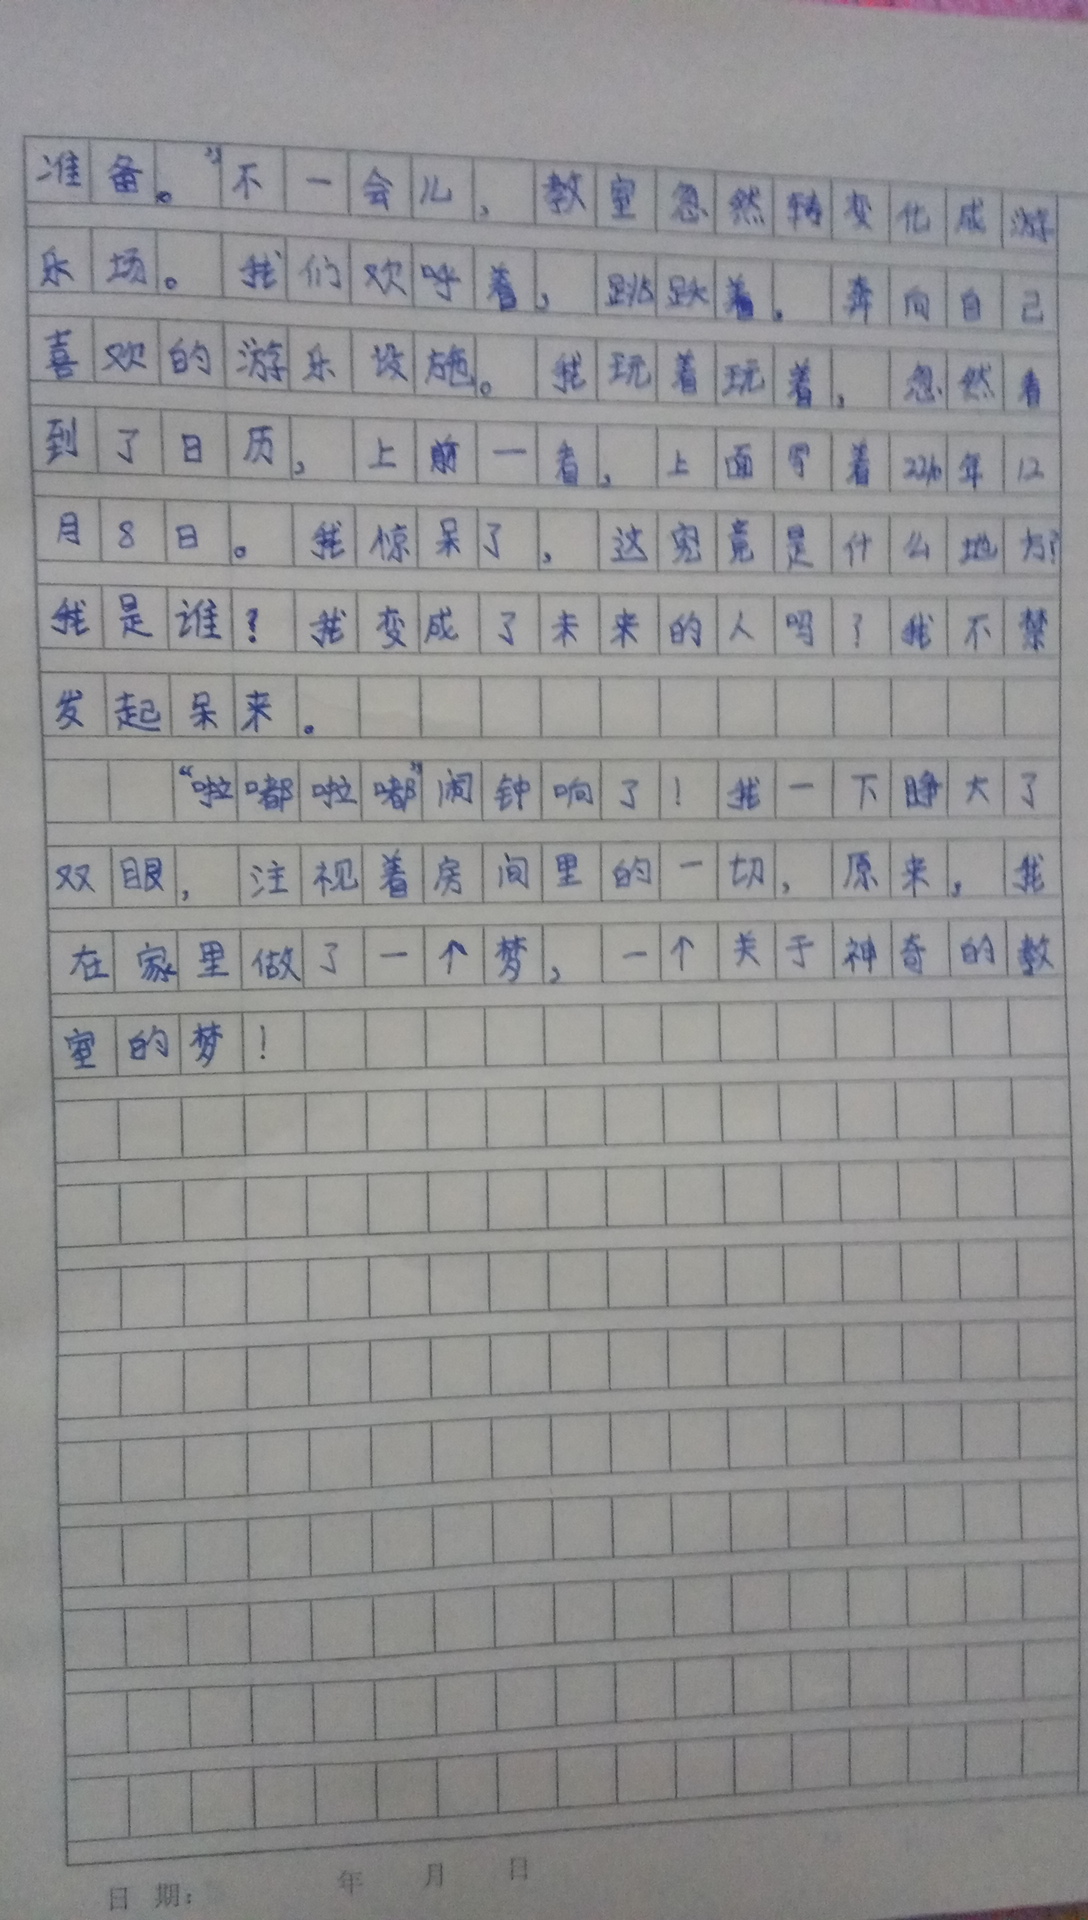 准备。”不一会儿，教室忽然转变化成游
乐场。我们欢呼着，跳跃着。奔向自己
喜欢的游乐设施。我玩着玩着，忽然看
到了日历，上前一看，上面写着年12
月8日。我惊呆了，这究竟是什么地方？
我是谁？我变成了未来的人吗？我不禁
发起呆来。
“啦嘟啦嘟”闹钟响了！我一下睁大了
双眼，注视着房间里的一切，原来，我
在家里做了一个梦，一个关于神奇的教
室的梦！
日期： 年 月 日